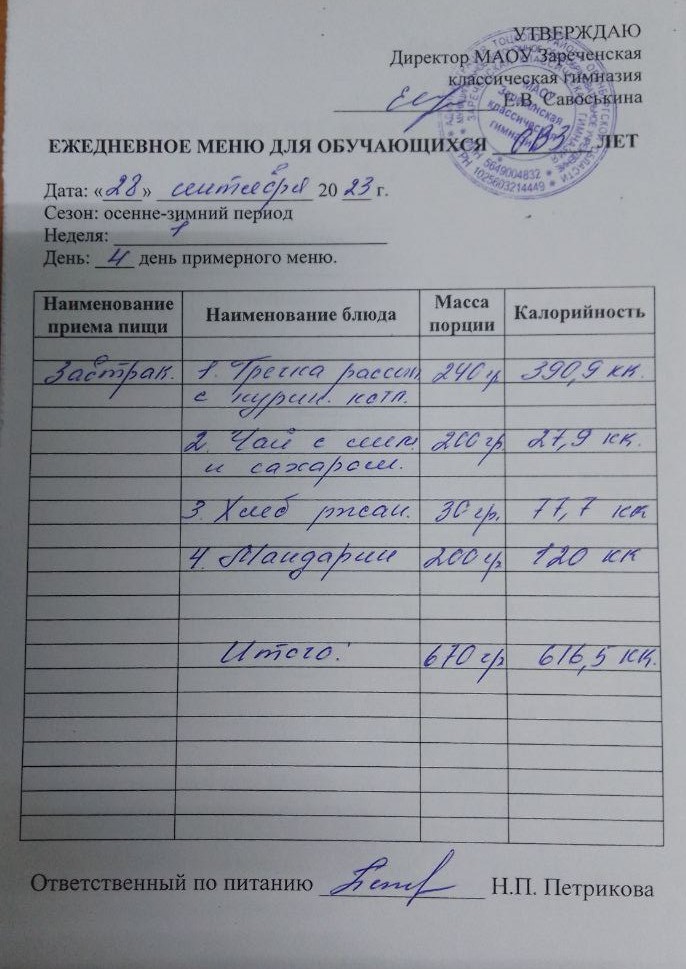 УТВЕРЖДАЮ
Директор МАОУ Зареченская
классическая гимназия
Е.В. Савоськина
МАОУ Зареченская классическая гимназия
5649004832
1025603214449
ЕЖЕДНЕВНОЕ МЕНЮ ДЛЯ ОБУЧАЮЩИХСЯ ОВЗ ЛЕТ
Дата: «28» сентября 2023 г.
Сезон: осенне-зимний период
Неделя: 1
День: 4 день примерного меню.
Наименование приема пищи Наименование блюда Масса порции Калорийность
Завтрак. 1. Гречка рассып. 240 гр 390,9 кк.
с курин. котл.
2. Чай с лим. 200 гр. 27,9 кк.
и сахаром.
3. Хлеб ржан. 30 гр. 77,7 кк
4. Мандарин 200 гр 120 кк
Итого: 670 гр 616,5 кк.
Ответственный по питанию Н.П. Петрикова